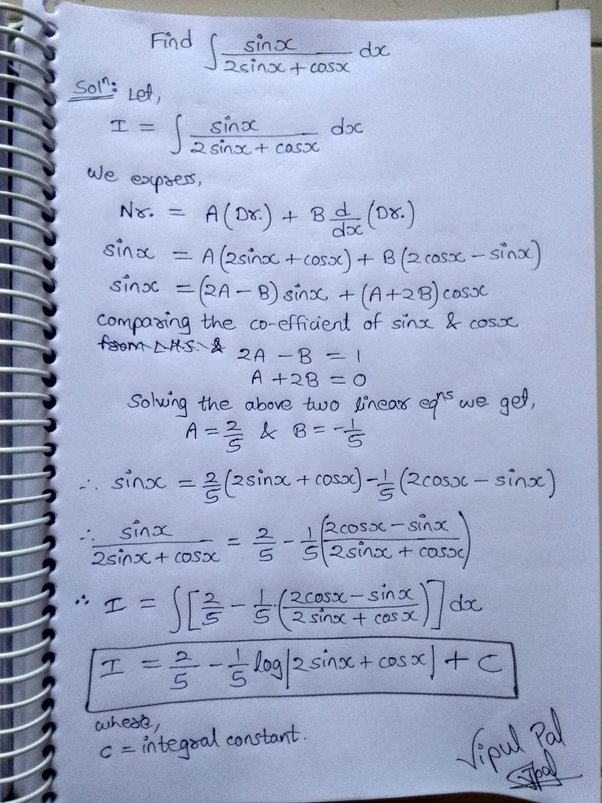 Find ∫ sinx / (2sinx + cosx) dx
Solⁿ: Let,
I = ∫ sinx / (2sinx + cosx) dx
We express,
Nr. = A(Dr.) + B d/dx (Dr.)
sinx = A(2sinx + cosx) + B(2cosx - sinx)
sinx = (2A - B) sinx + (A+2B) cosx
comparing the co-efficient of sinx & cosx
from L.H.S. & 2A - B = 1
A + 2B = 0
Solving the above two linear eqⁿˢ we get,
A = 2/5 & B = -1/5
∴ sinx = 2/5 (2sinx + cosx) - 1/5 (2cosx - sinx)
∴ sinx / (2sinx + cosx) = 2/5 - 1/5 ((2cosx - sinx) / (2sinx + cosx))
∴ I = ∫ [2/5 - 1/5 · ((2cosx - sinx) / (2sinx + cosx))] dx
I = 2/5 - 1/5 log|2sinx + cosx| + C
where,
C = integral constant.
Vipul Pal
Vpal